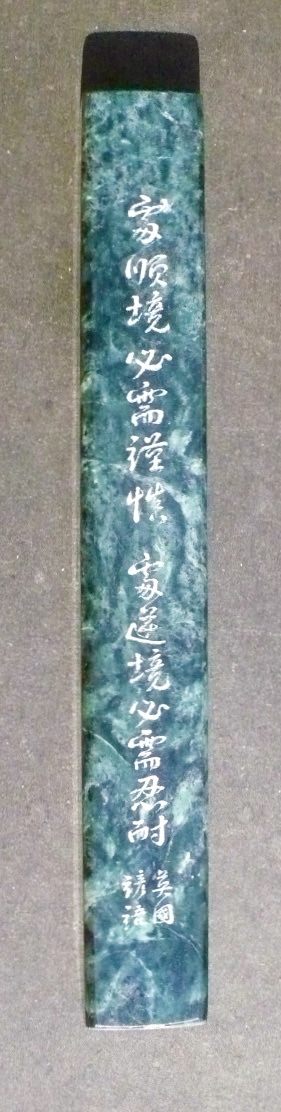 處順境必需謹慎 處逆境必需忍耐
英國
諺語